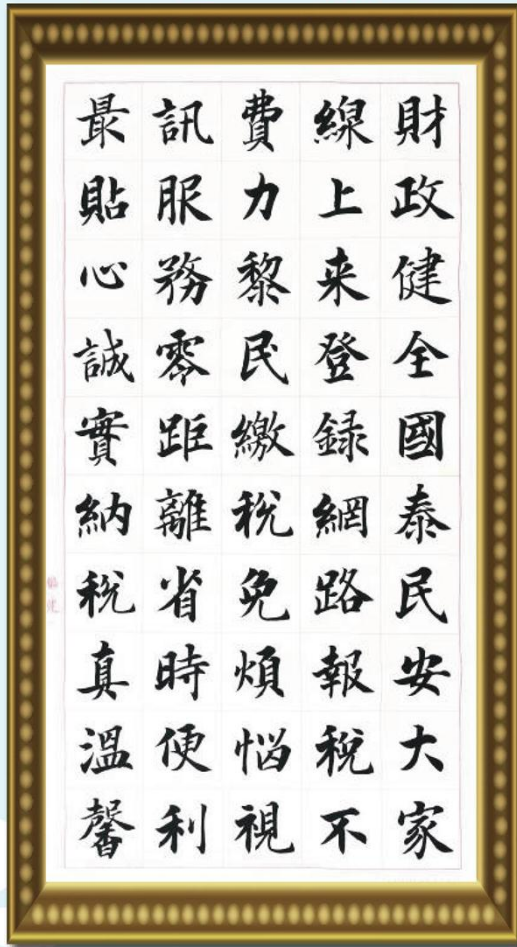 財政健全國泰民安大家
線上来登録網路報稅不
費力黎民繳稅免煩惱視
訊服務零距離省時便利
最貼心誠實納稅真溫馨